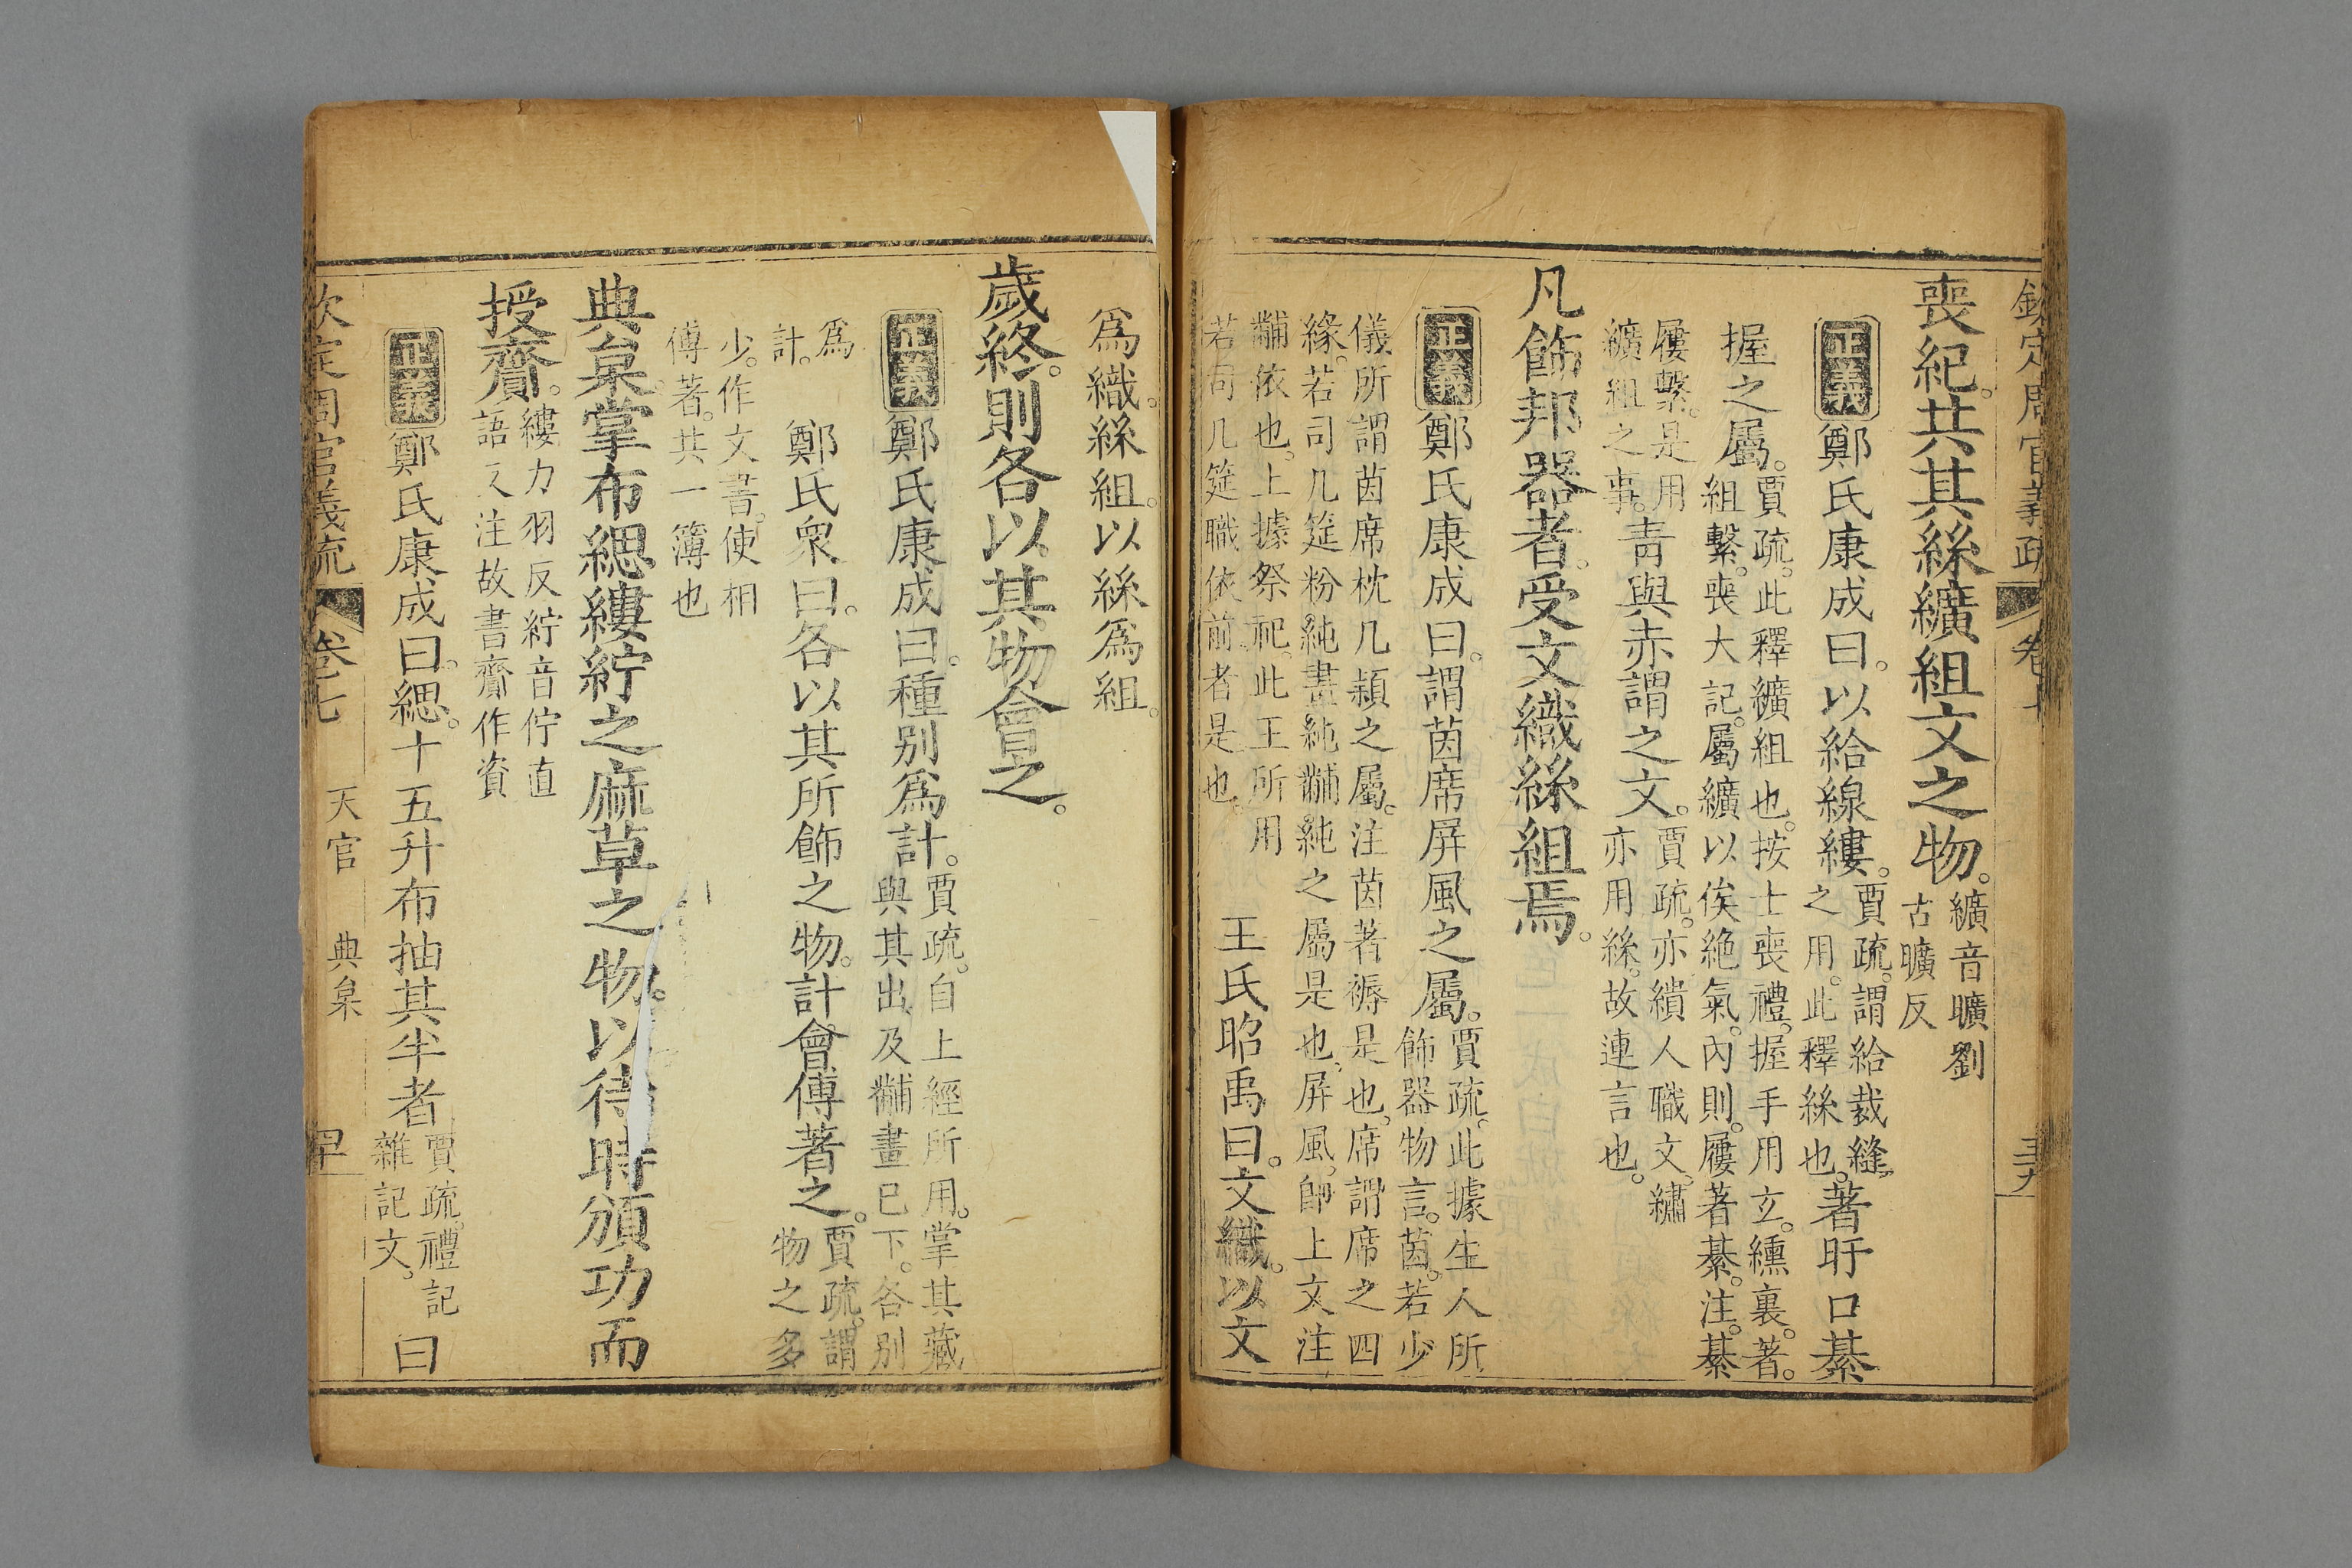 欽定周官義疏 卷七 三十九
喪紀。共其絲纊組文之物。纊音曠劉
古曠反
正義鄭氏康成曰。以給線縷。賈疏。謂給裁縫
之用。此釋絲也。著盱口綦
握之屬。賈疏。此釋纊組也。按士喪禮。握手用玄。纁裏。著。
組繫。喪大記。屬纊以俟絶氣。內則。屨著綦。注。綦
屨繫。是用
纊組之事。青與赤謂之文。賈疏。亦繢人職文。繡
亦用絲。故連言也。
凡飾邦器者。受文織絲組焉。
正義鄭氏康成曰。謂茵席屏風之屬。賈疏。此據生人所
飾器物言。茵。若少
儀所謂茵席枕几頴之屬。注茵著褥是也。席謂席之四
緣。若司几筵粉純畫純黼純之屬是也。屏風。卽上文注
黼依也。上據祭祀。此王所用
若司几筵職依前者是也。王氏昭禹曰。文織。以文
爲織。絲組。以絲爲組。
歲終。則各以其物會之。
正義鄭氏康成曰。種别爲計。賈疏。自上經所用。掌其藏
與其出。及黼畫已下。各别
爲
計。鄭氏衆曰。各以其所飾之物。計會傅著之。賈疏。謂
物之多
少。作文書。使相
傅著。共一簿也
典枲。掌布緦縷紵之麻草之物。以待時頒功而
授齎。縷力羽反紵音佇直
語反注故書齎作資
正義鄭氏康成曰。緦。十五升布抽其半者。賈疏。禮記
雜記文。曰
欽定周官義疏 卷七 天官 典枲 四十